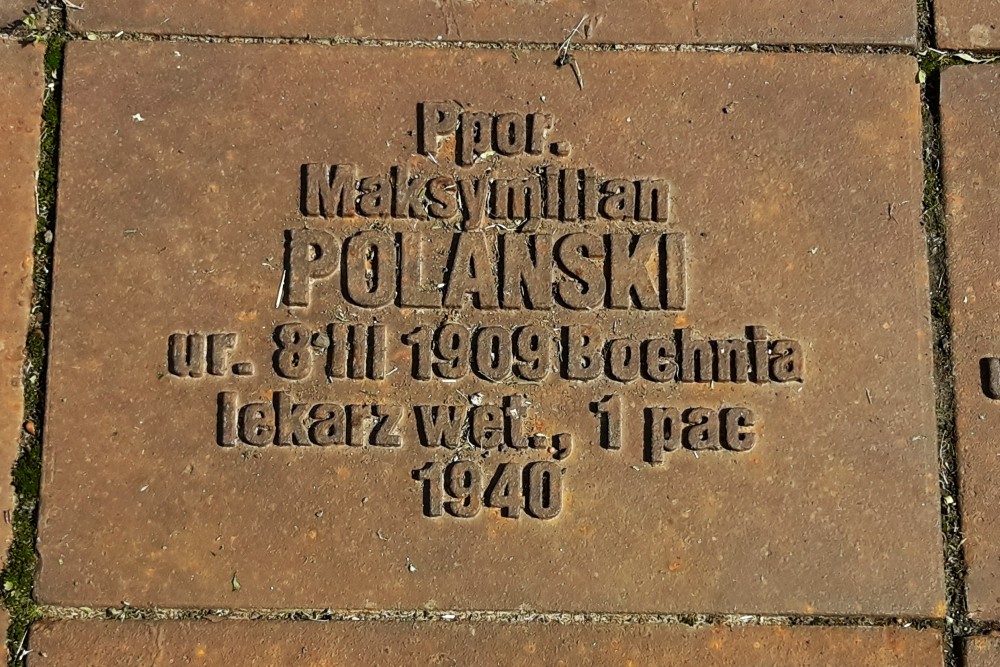 Ppor.
Maksymilian
POLAŃSKI
ur. 8 III 1909 Bochnia
lekarz wet., 1 pac
1940